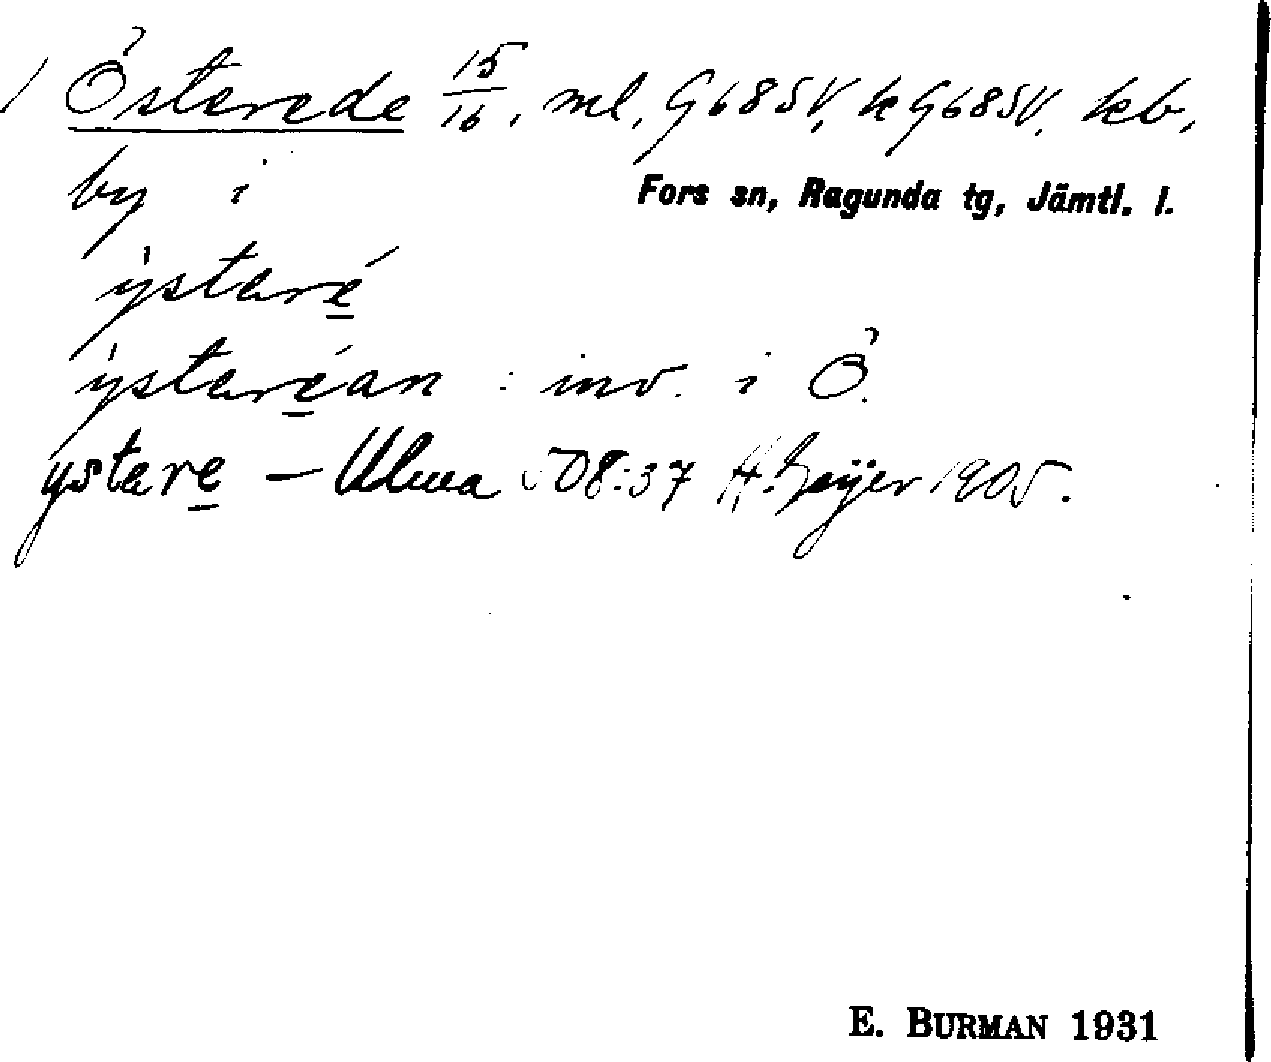 Österede 15/16, ml, G685V, k G685V, kb,
by i Fors sn, Ragunda tg, Jämtl. l.
ystaré
ystaréan : inv. i Ö.
ystare – Ulma 508:37 H. Geijer 1905.
E. BURMAN 1931